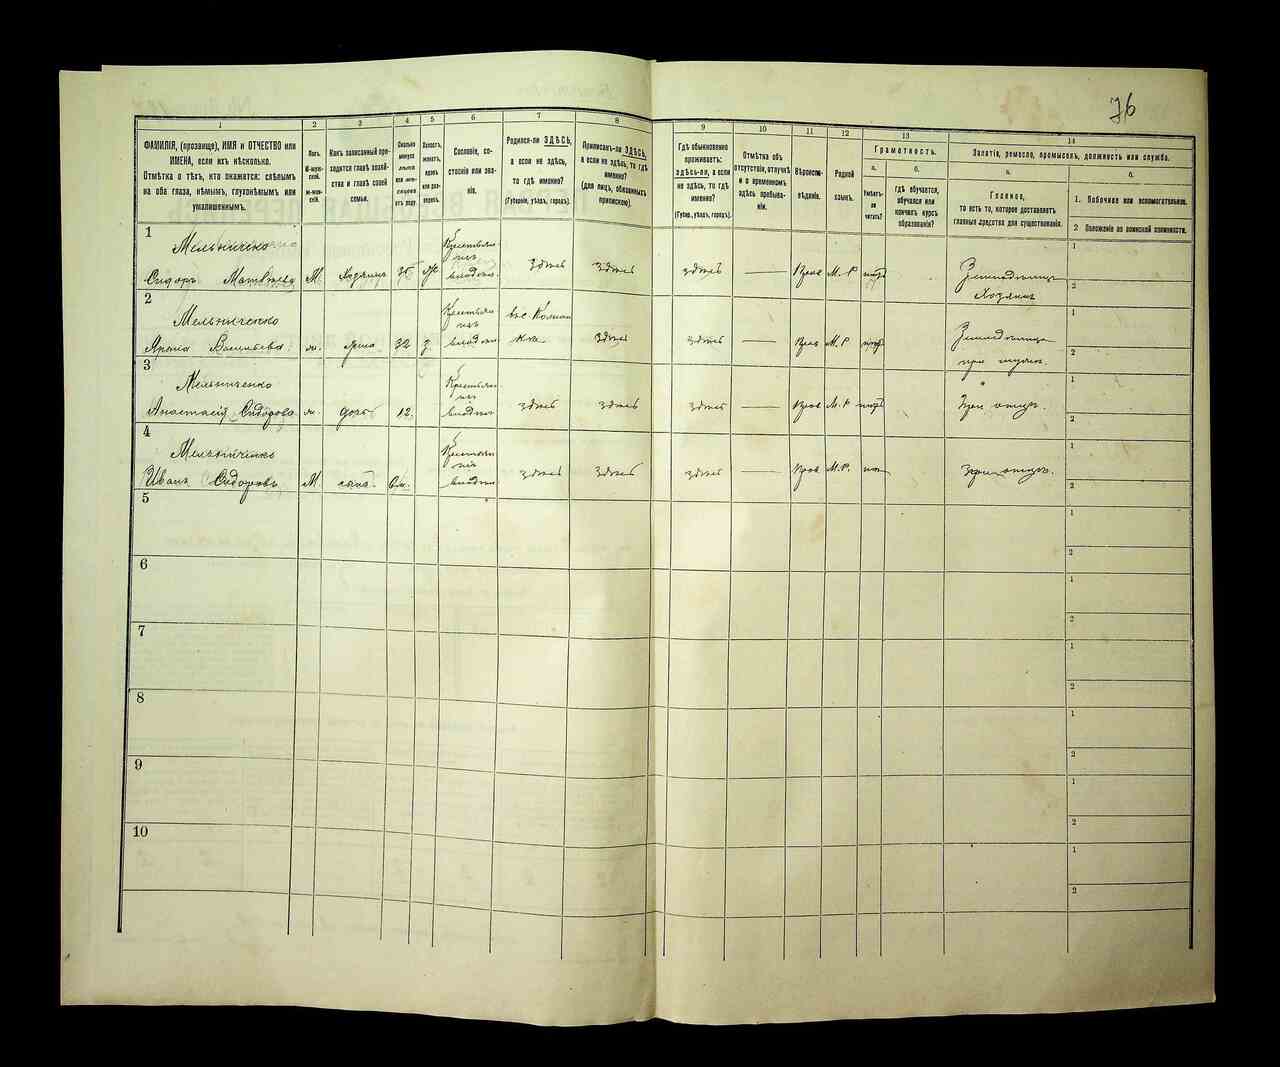 76
1 2 3 4 5 6 7 8 9 10 11 12 13 14
ФАМИЛІЯ, (прозвище), ИМЯ и ОТЧЕСТВО или
ИМЕНА, если ихъ нѣсколько.
Отмѣтка о тѣхъ, кто окажется: слѣпымъ
на оба глаза, нѣмымъ, глухонѣмымъ или
умалишеннымъ.
Полъ.
М-мужской.
ж-женскій.
Какъ записанный приходится главѣ хозяйства и главѣ своей
семьи.
Сколько
минуло
лѣтъ
или мѣсяцевъ
отъ роду.
Холостъ,
женатъ,
вдовъ
или разведенъ.
Сословіе, состояніе или званіе.
Родился-ли ЗДѢСЬ,
а если не здѣсь,
то гдѣ именно?
(Губернія, уѣздъ, городъ).
Приписанъ-ли ЗДѢСЬ,
а если не здѣсь, то гдѣ
именно?
(для лицъ, обязанныхъ
припискою).
Гдѣ обыкновенно
проживаетъ:
здѣсь-ли, а если
не здѣсь, то гдѣ
именно?
(Губер., уѣздъ, городъ).
Отмѣтка объ
отсутствіи, отлучкѣ
и о временномъ
здѣсь пребываніи.
Вѣроисповѣданіе.
Родной
языкъ.
Грамотность.
а.
Умѣетъ-ли
читать?
б.
гдѣ обучается,
обучался или
кончилъ курсъ
образованія?
Занятіе, ремесло, промыселъ, должность или служба.
а.
Главное,
то есть то, которое доставляетъ
главныя средства для существованія.
б.
1. Побочное или вспомогательное.
2 Положеніе по воинской повинности.
1
Мельниченко
Сидоръ Матвѣевъ М. Хозяинъ 35 здѣсь здѣсь здѣсь — М.Р.
Хозяинъ
1
2
2
Мельниченко
Васильева ж. жена 32 з здѣсь здѣсь М.Р.
1
2
3
Мельниченко
Анастасія Сидорова ж. дочь 12 здѣсь здѣсь здѣсь — М.Р. при отцѣ.
1
2
4
Мельниченко
Иванъ Сидоровъ М. сынъ. здѣсь здѣсь здѣсь — М.Р. при отцѣ.
1
2
5
1
2
6
1
2
7
1
2
8
1
2
9
1
2
10
1
2